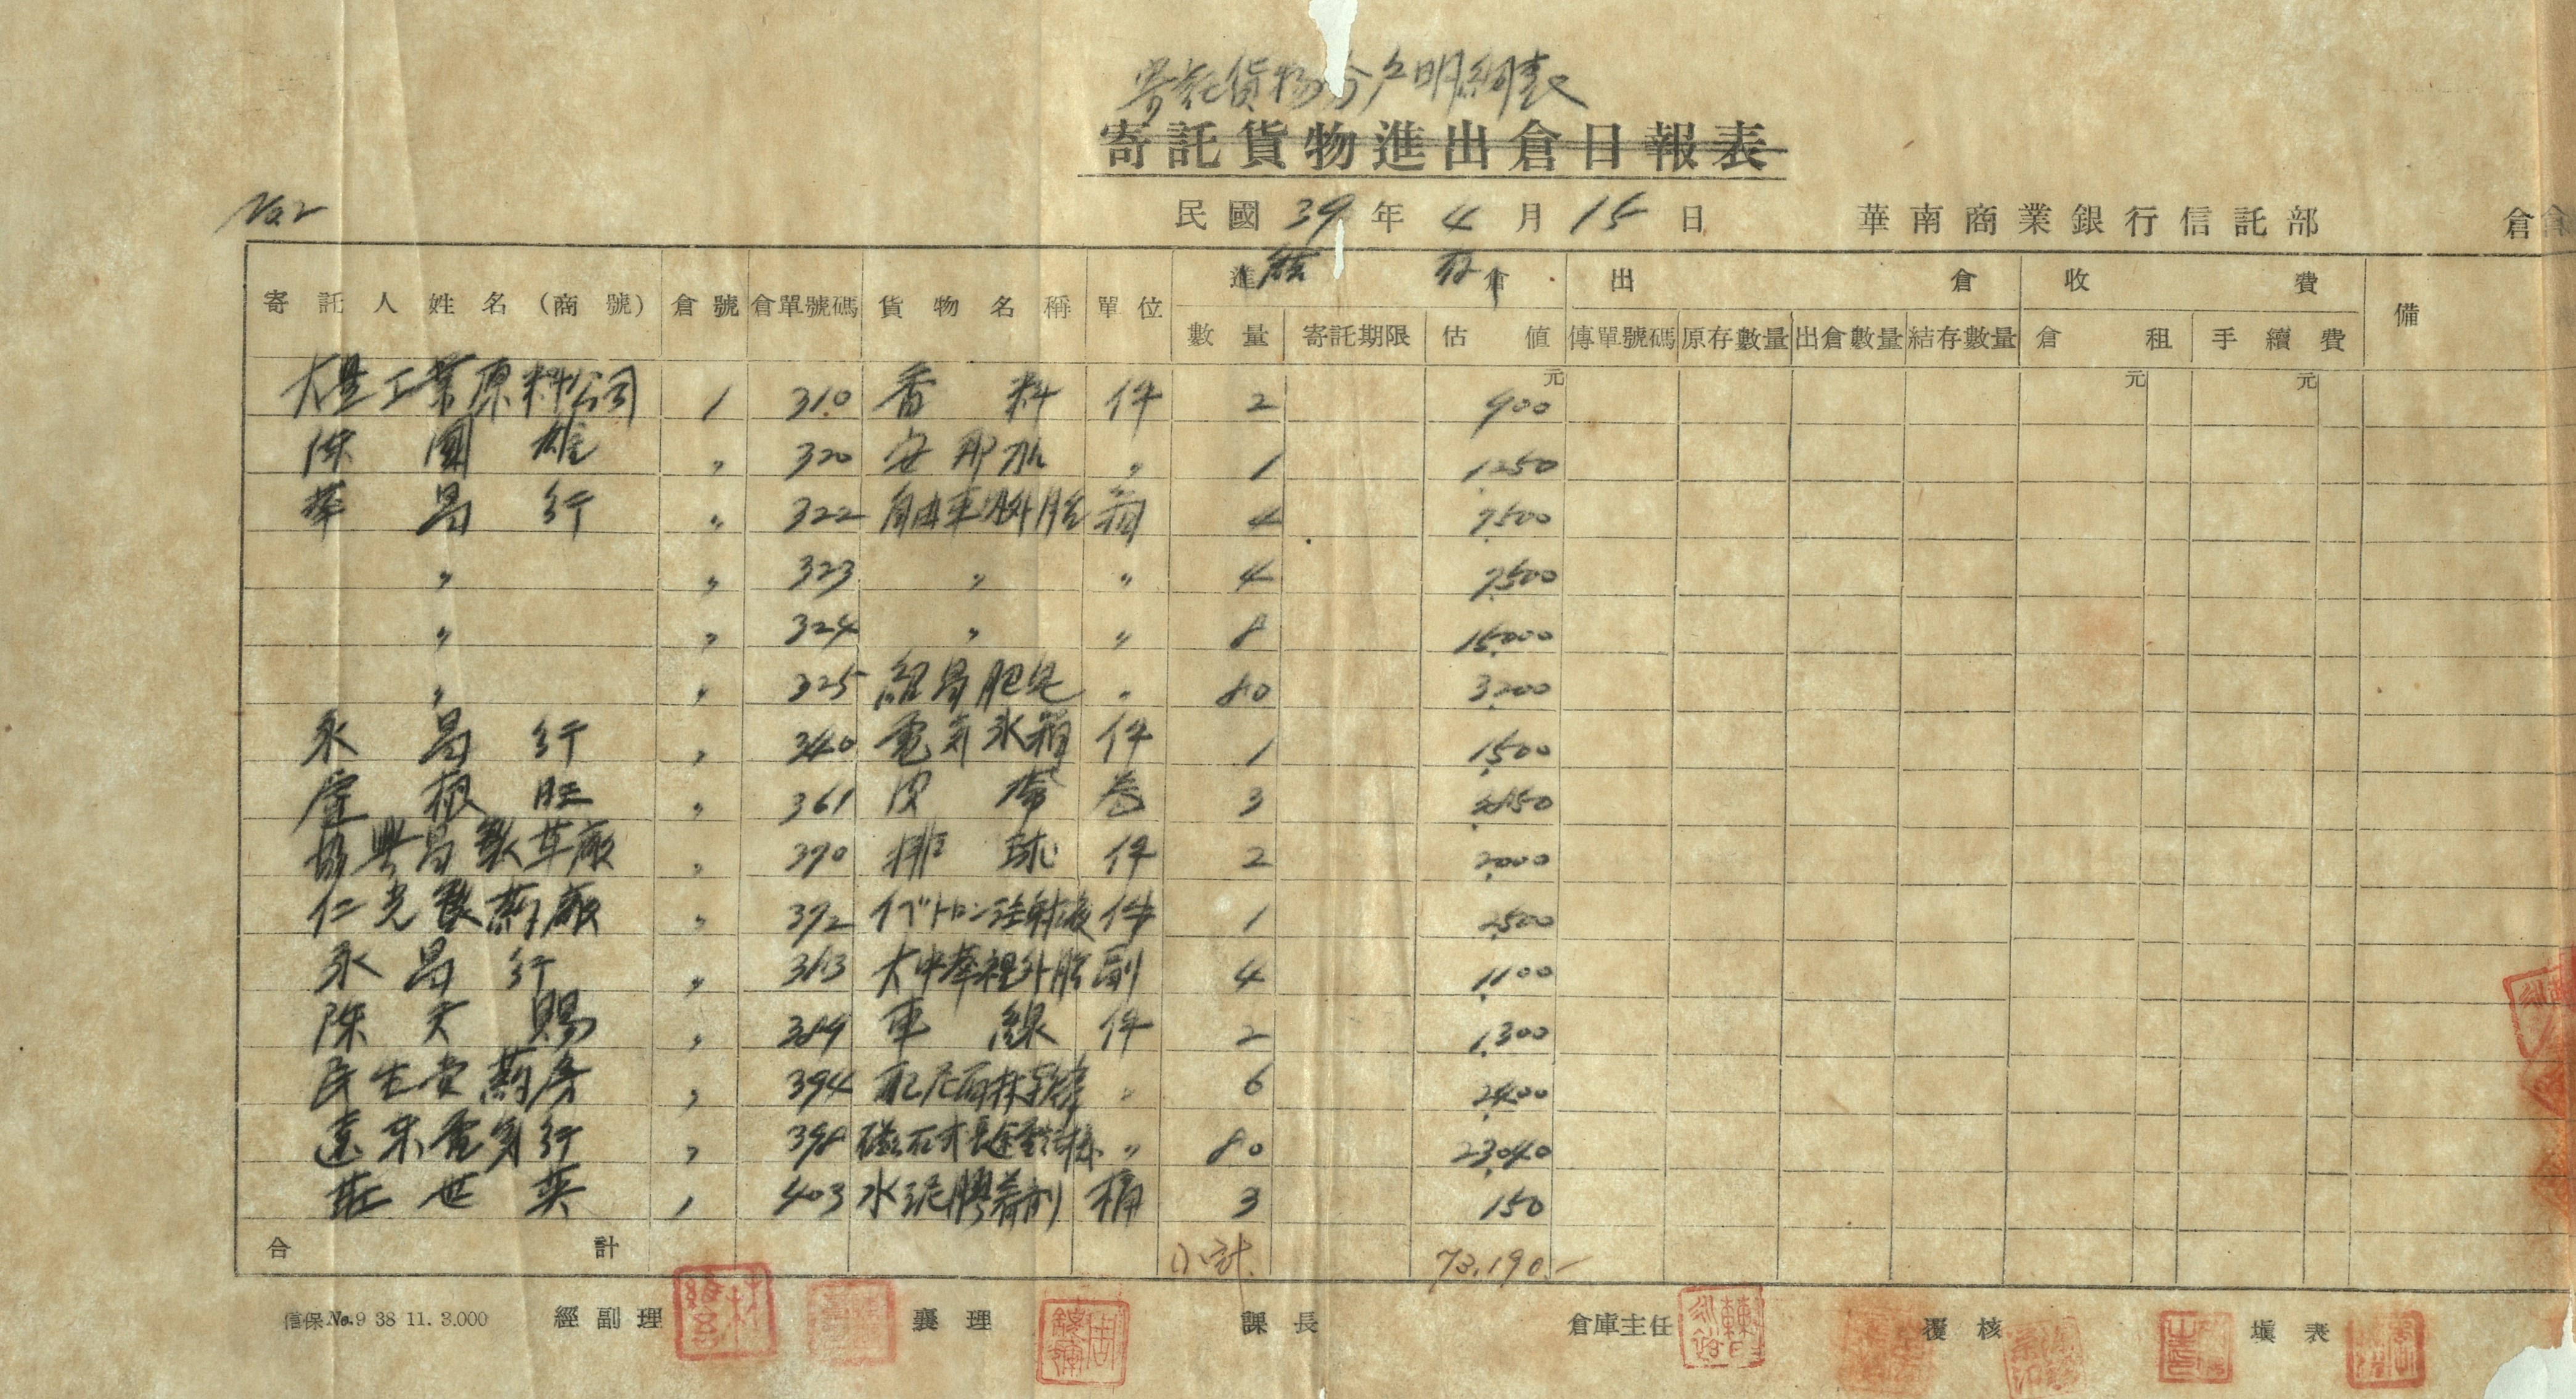 寄託貨物分戶明細表
寄託貨物進出倉日報表
No.2 民國39年4月15日 華南商業銀行信託部 倉
寄託人姓名(商號) 倉號 倉單號碼 貨物名稱 單位 進結存倉 出倉 收費 備
數量 寄託期限 估值 傳單號碼 原存數量 出倉數量 結存數量 倉租 手續費
元 元 元
大星工業原料公司 1 310 香料 件 2 900
陳國雄 〃 320 安那水 〃 1 1,250
華昌行 〃 322 自由車內外胎 箱 4 7,500
〃 〃 323 〃 〃 4 7,500
〃 〃 324 〃 〃 8 15,000
〃 〃 325 紹昌肥皂 〃 80 3,200
永昌行 〃 340 電気氷箱 件 1 1,500
361 皮帶 卷 3
協興昌製革廠 〃 370 排球 件 2 2,000
仁光製薬廠 〃 372 イブトロン注射液 件 1 2,500
永昌行 〃 383 大中華裡外胎 副 4 1,100
陳天賜 〃 389 車線 件 2 1,300
民生堂薬房 〃 394 〃 6 2,400
遠東電気行 〃 398 磁石式長途電話機 〃 80 23,040
莊世英 1 403 水泥膠着劑 桶 3 150
合計 小計 73,190.-
信保No.9 38 11. 3.000 經副理 襄理 課長 倉庫主任 覆核 塡表